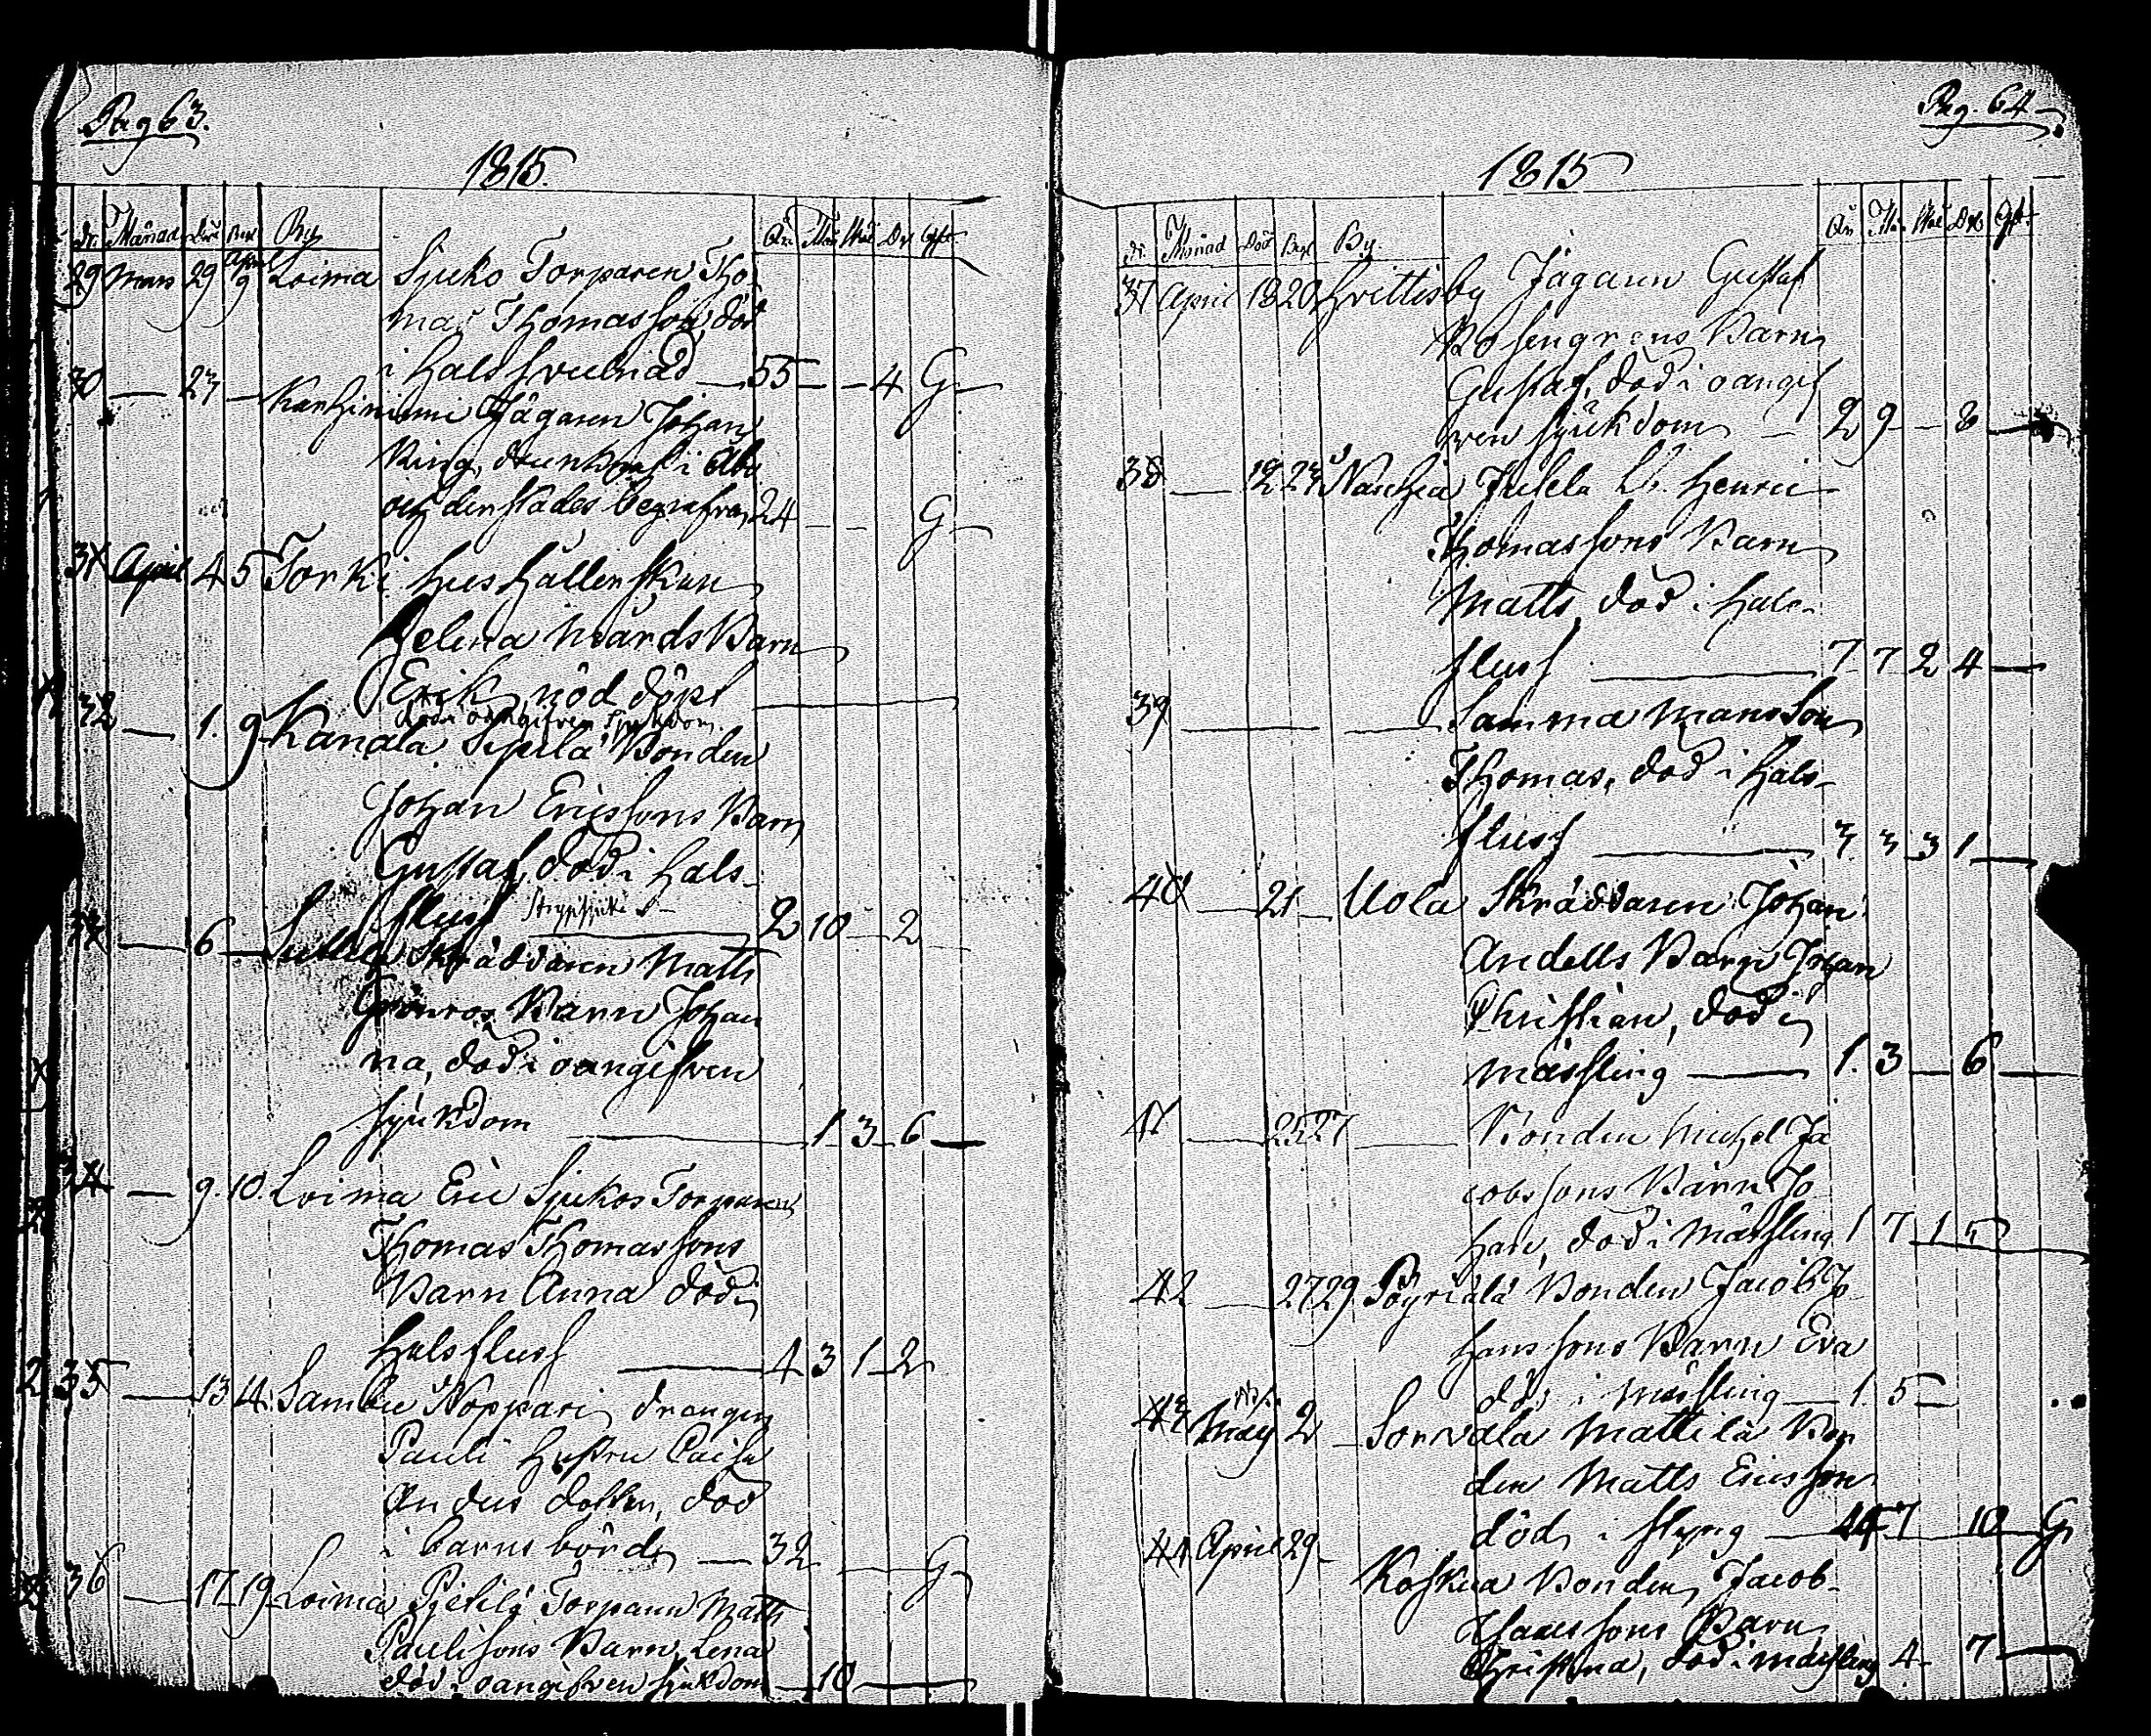 Pag 63.
1815.
Nr. Månad Död Beg By År Må. Wek Dag Gift
29 Mars 29 April 9 Loima Sjuko Torparen Tho-
mas Thomasson, död
i halssvulnad 55 — — 4 G
30 — 23 — Karhiniemi Jägaren Johan
Ring, drunknat i Åbo
och derstädes begrafven 24 — — G
31 April 4 5 Torki Hushållerskan
Helena Mårds Barn
Erik, nöd döpt
död i oangifven sjukdom
32 — 1. 9 Kanala Sipilä Bonden
Johan Ericssons Barn
Gustaf, död i hals-
fluss strypsjuka 2 10 — 2
33 — 6 — Suttila Skräddaren Matts
Grönros Barn Johan
na, död i oangifven
sjukdom 1 3 6 —
34 — 9. 10. Loima Eric Sjukos Torparen
Thomas Thomassons
Barn Anna död i
Halsfluss 4 3 1 2
35 — 13 14 Sambu Noppari drängen
Pauli Hustru Caisa
Anders dotter, död
i barnsbörd — 32 — G
36 — 17 19 Loima Pietilä Torparen Matts
Paulisons Barn, Lena
död i oangifven sjukdom — 10 —
Pag. 64
1815
Nr. Månad Död Beg By År Må. Wek Dag Gift
37 April 18 20 Hvittisby Jägaren Gustaf
Rosengrens Barn
Gustaf, död i oangif
ven sjukdom — 2 9 — 8 —
38 — 19 23 Nanhia Jussila Henric
Thomassons Barn
Matts, död i hals-
fluss 7 7 2 4 —
39 — — Samma Mans Son
Thomas, död i hals-
fluss 3 3 3 1 —
40 — 21 — Uola Skräddaren Johan
Andells Barn Johan
Christian, död i
mässling 1. 3 — 6 —
41 — 25 27 — Bonden Michel Ja
cobssons Barn Jo
han, död i Mässling 1 7 1 5
42 — 27 29 Pöyriälä Bonden Jacob Jo
hanssons Barn Eva
död i mässling — 1. 5 —
43 May 2 — Sorvala Mattila Bon
den Matts Ericsson
död i styng — 44 7 10 G
44 April 29 — Koskua Bonden Jacob
Barn
Christina, död i mässling 4 — 7 —